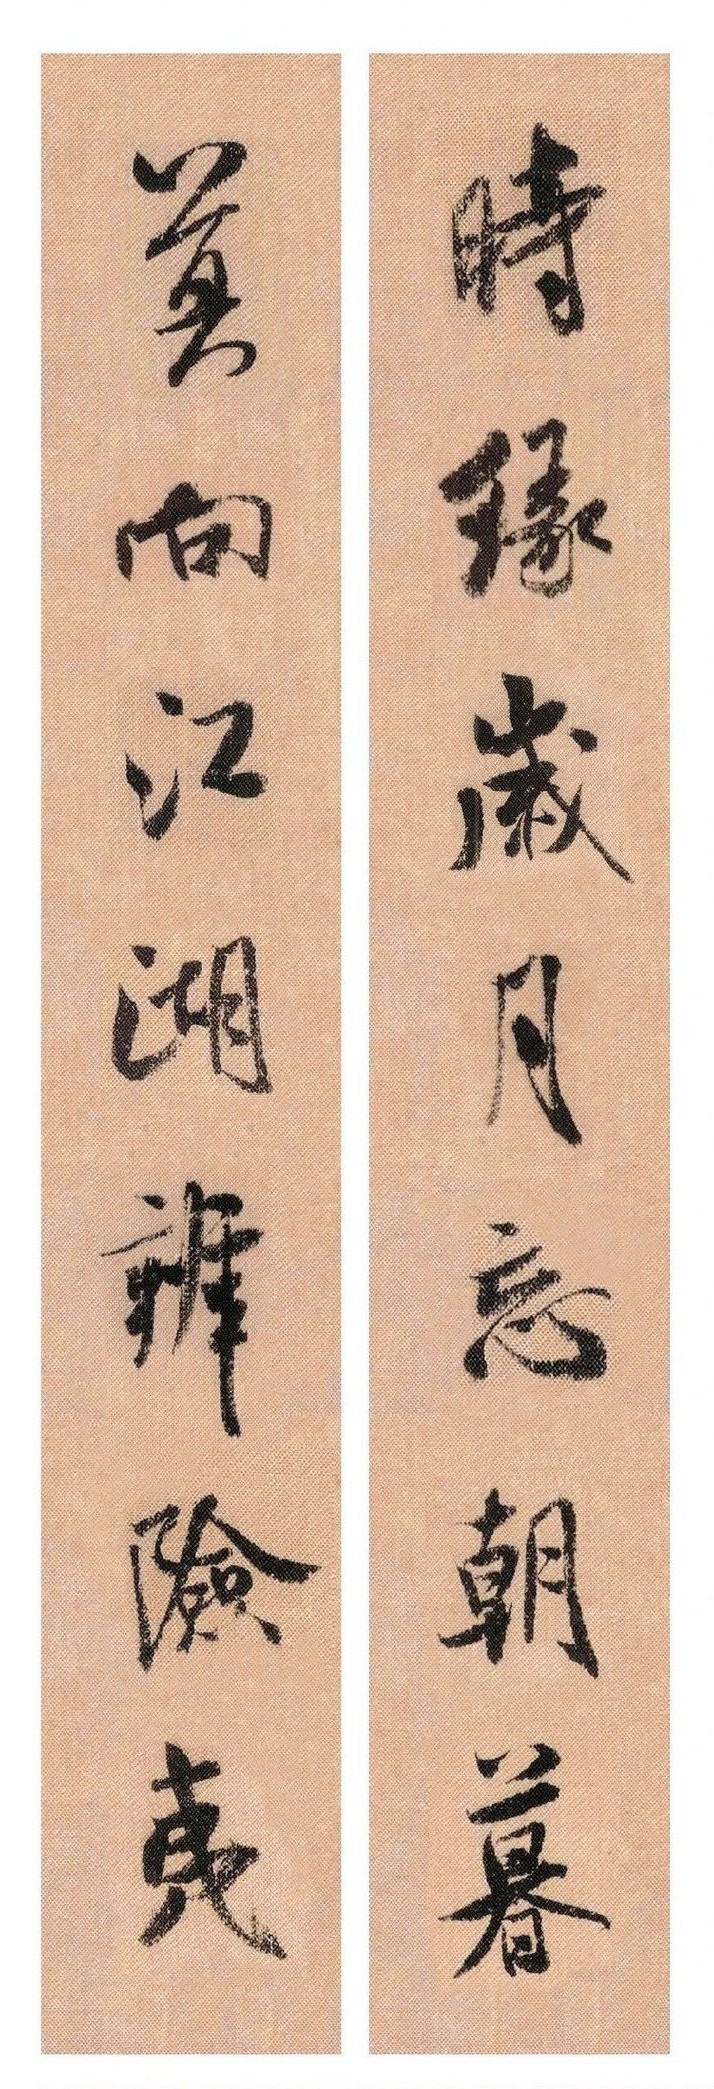 時緣歲月忘朝暮
莫向江湖辨險夷